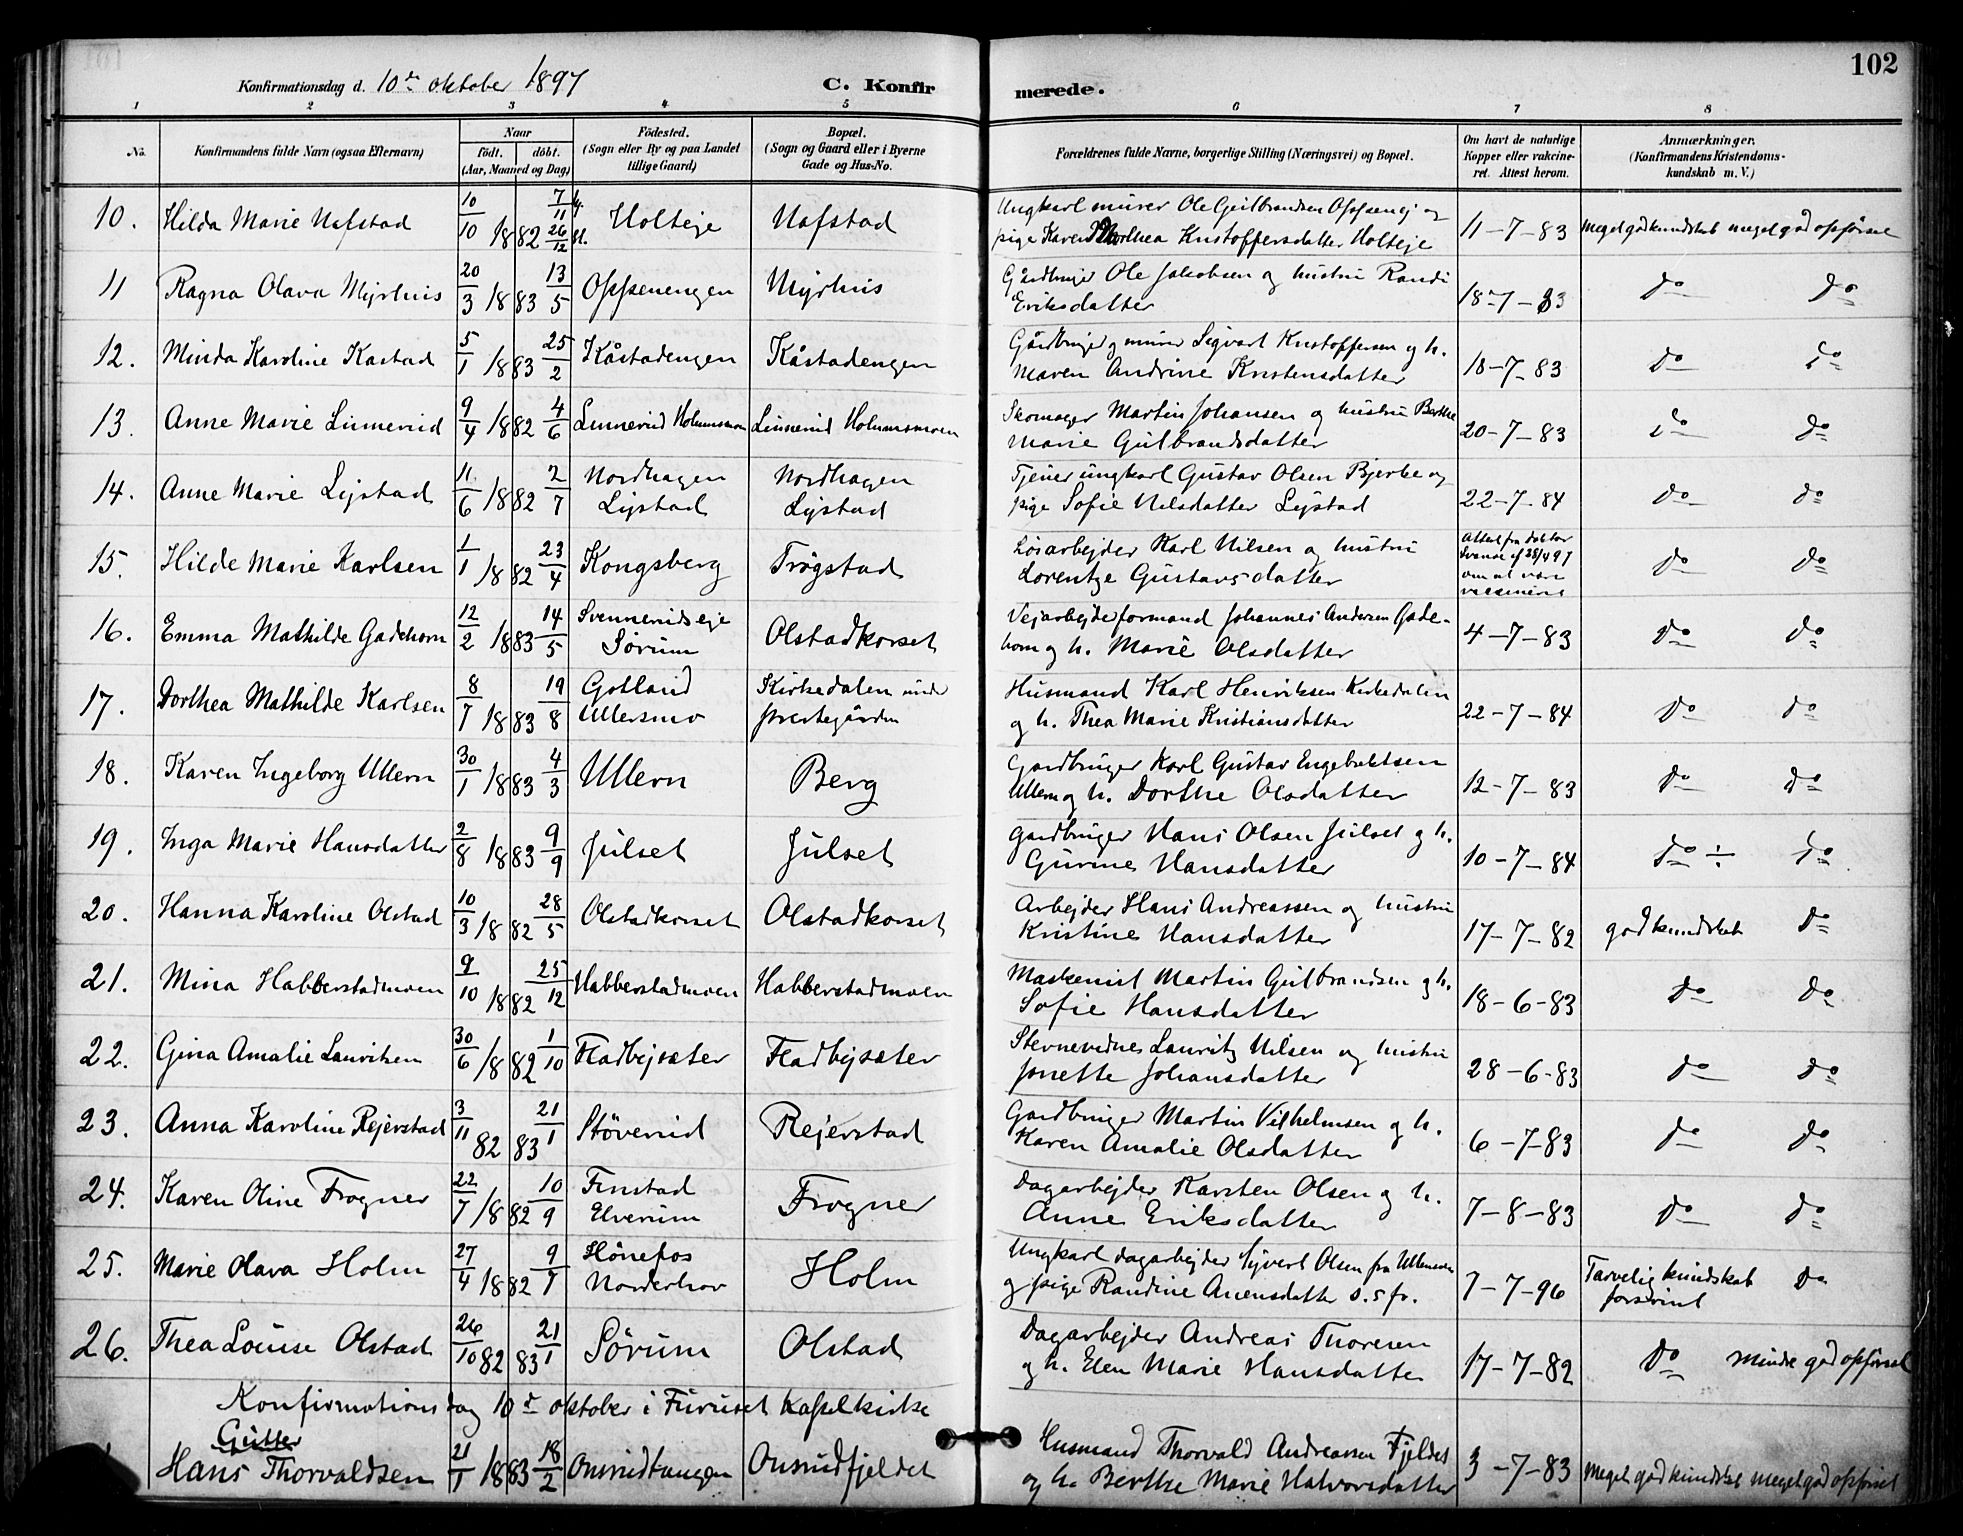 102
Konfirmationsdag d. 10de oktober 1897
C. Konfirmerede.
1 2 3 4 5 6 7 8
No.
Konfirmandens fulde Navn (ogsaa Efternavn)
Naar
født. døbt.
(Aar, Maaned og Dag)
Fødested.
(Sogn eller By og paa Landet
tillige Gaard)
Bopæl.
(Sogn og Gaard eller i Byerne
Gade og Hus-No.
Forældrenes fulde Navne, borgerlige Stilling (Næringsvei) og Bopæl.
Om havt de naturlige
Kopper eller vakcine-
ret. Attest herom.
Anmærkninger.
(Konfirmandens Kristendoms-
kundskab m. V.)
10. Hilda Marie Nafstad 10/10 1882 7/11 26/12 Holteje Nafstad
Ungkarl murer Ole Gulbrandsen Oppenej og
pige Karen Dorthea Kristoffersdatter Holteje 11-7-83 Meget god kundskab meget god opførsel
11 Ragna Olava Myrhus 20/3 1883 13/5 Oppenengen Myrhus
Gårdbruger Ole Jakobsen og hustru Randi
Eriksdatter 18-7-83 do do
12. Minda Karoline Kåstad 5/1 1883 25/2 Kåstadengen Kåstadengen
Gårdbruger og murer Sigvart Kristoffersen og h.
Maren Andrine Kristensdatter 18-7-83 do do
13. Anne Marie Linnerud 9/4 1882 4/6 Linnerud Holmsmoen Linnerud Holmsmoen
Skomager Martin Johansen og hustru Berthe
Marie Gulbrandsdatter 20-7-83 do do
14. Anne Marie Lystad 11/6 1882 2/7 Nordhagen Lystad Nordhagen Lystad
Tjener ungkarl Gustav Olsen Bjerke og
pige Sofie Nilsdatter Lystad 22-7-84 do do
15. Hilde Marie Karlsen 1/1 1882 23/4 Kongsberg Trøgstad
Løsarbejder Karl Nilsen og hustru
Lorentze Gustavsdatter Attest fra doktor
af 28/4 97
om at være
do do
16. Emma Mathilde Gadehorn 12/2 1883 14/5 Svennerudseje Sørum Olstadkorset
Vejarbejdeformand Johannes Andersen Gade-
horn og h. Marie Olsdatter 4-7-83 do do
17. Dorthea Mathilde Karlsen 8/7 1883 19/8 Gotland Ullersmo Kirkedalen under prestegården
Husmand Karl Henriksen Kirkedalen
og h. Thea Marie Kristiansdatter 22-7-84 do do
18. Karen Ingeborg Ullern 30/1 1883 4/3 Ullern Berg
Gardbruger Karl Gustav Engebretsen
Ullern og h. Dorthe Olsdatter 12-7-83 do do
19. Inga Marie Hansdatter 2/8 1883 9/9 Julset Julset
Gardbruger Hans Olsen Julset og h.
Gurine Hansdatter 10-7-84 do ÷ do
20. Hanna Karoline Olstad 10/3 1882 28/5 Olstadkorset Olstadkorset
Arbejder Hans Andreassen og hustru
Kristine Hansdatter 17-7-82 god kundskab do
21. Mina Habberstadmoen 9/10 1882 25/12 Habberstadmoen Habberstadmoen
Maskenist Martin Gulbrandsen og h.
Sofie Hansdatter 18-6-83 do do
22. Gina Amalie Lauritsen 30/6 1882 1/10 Fladbysæter Fladbysæter
Stevnevidnes Lauritz Nilsen og hustru
Jonette Johansdatter 28-6-83 do do
23. Anna Karoline Rejerstad 3/11 82 21/1 83 Støverud Rejerstad
Gardbruger Martin Vilhelmsen og h.
Karen Amalie Olsdatter 6-7-83 do do
24. Karen Oline Frogner 22/7 1882 10/9 Finstad Elverum Frogner
Dagarbejder Karsten Olsen og h.
Anne Eriksdatter 7-8-83 do do
25. Marie Olava Holm 27/4 1882 9/7 Hønefos Norderhov Holm
Ungkarl dagarbejder Syvert Olsen fra Ullensaker
og pige Randine Anensdatter s. s. fr. 7-7-96 Tarvelig kundskab
do
26. Thea Louise Olstad 26/10 82 21/1 83 Sørum Olstad
Dagarbejder Andreas Thoresen
og h. Elen Marie Hansdatter 17-7-82 do mindre god opførsel
Konfirmationsdag 10de oktober i Furuset kapelkirke
Gutter
Hans Thorvaldsen 21/1 1883 18/2 Onsrudtangen Onsrudfjeldet
Husmand Thorvald Andreassen Fjeldet
og h. Berthe Marie Halvorsdatter 3-7-83 Meget god kundskab meget god opførsel